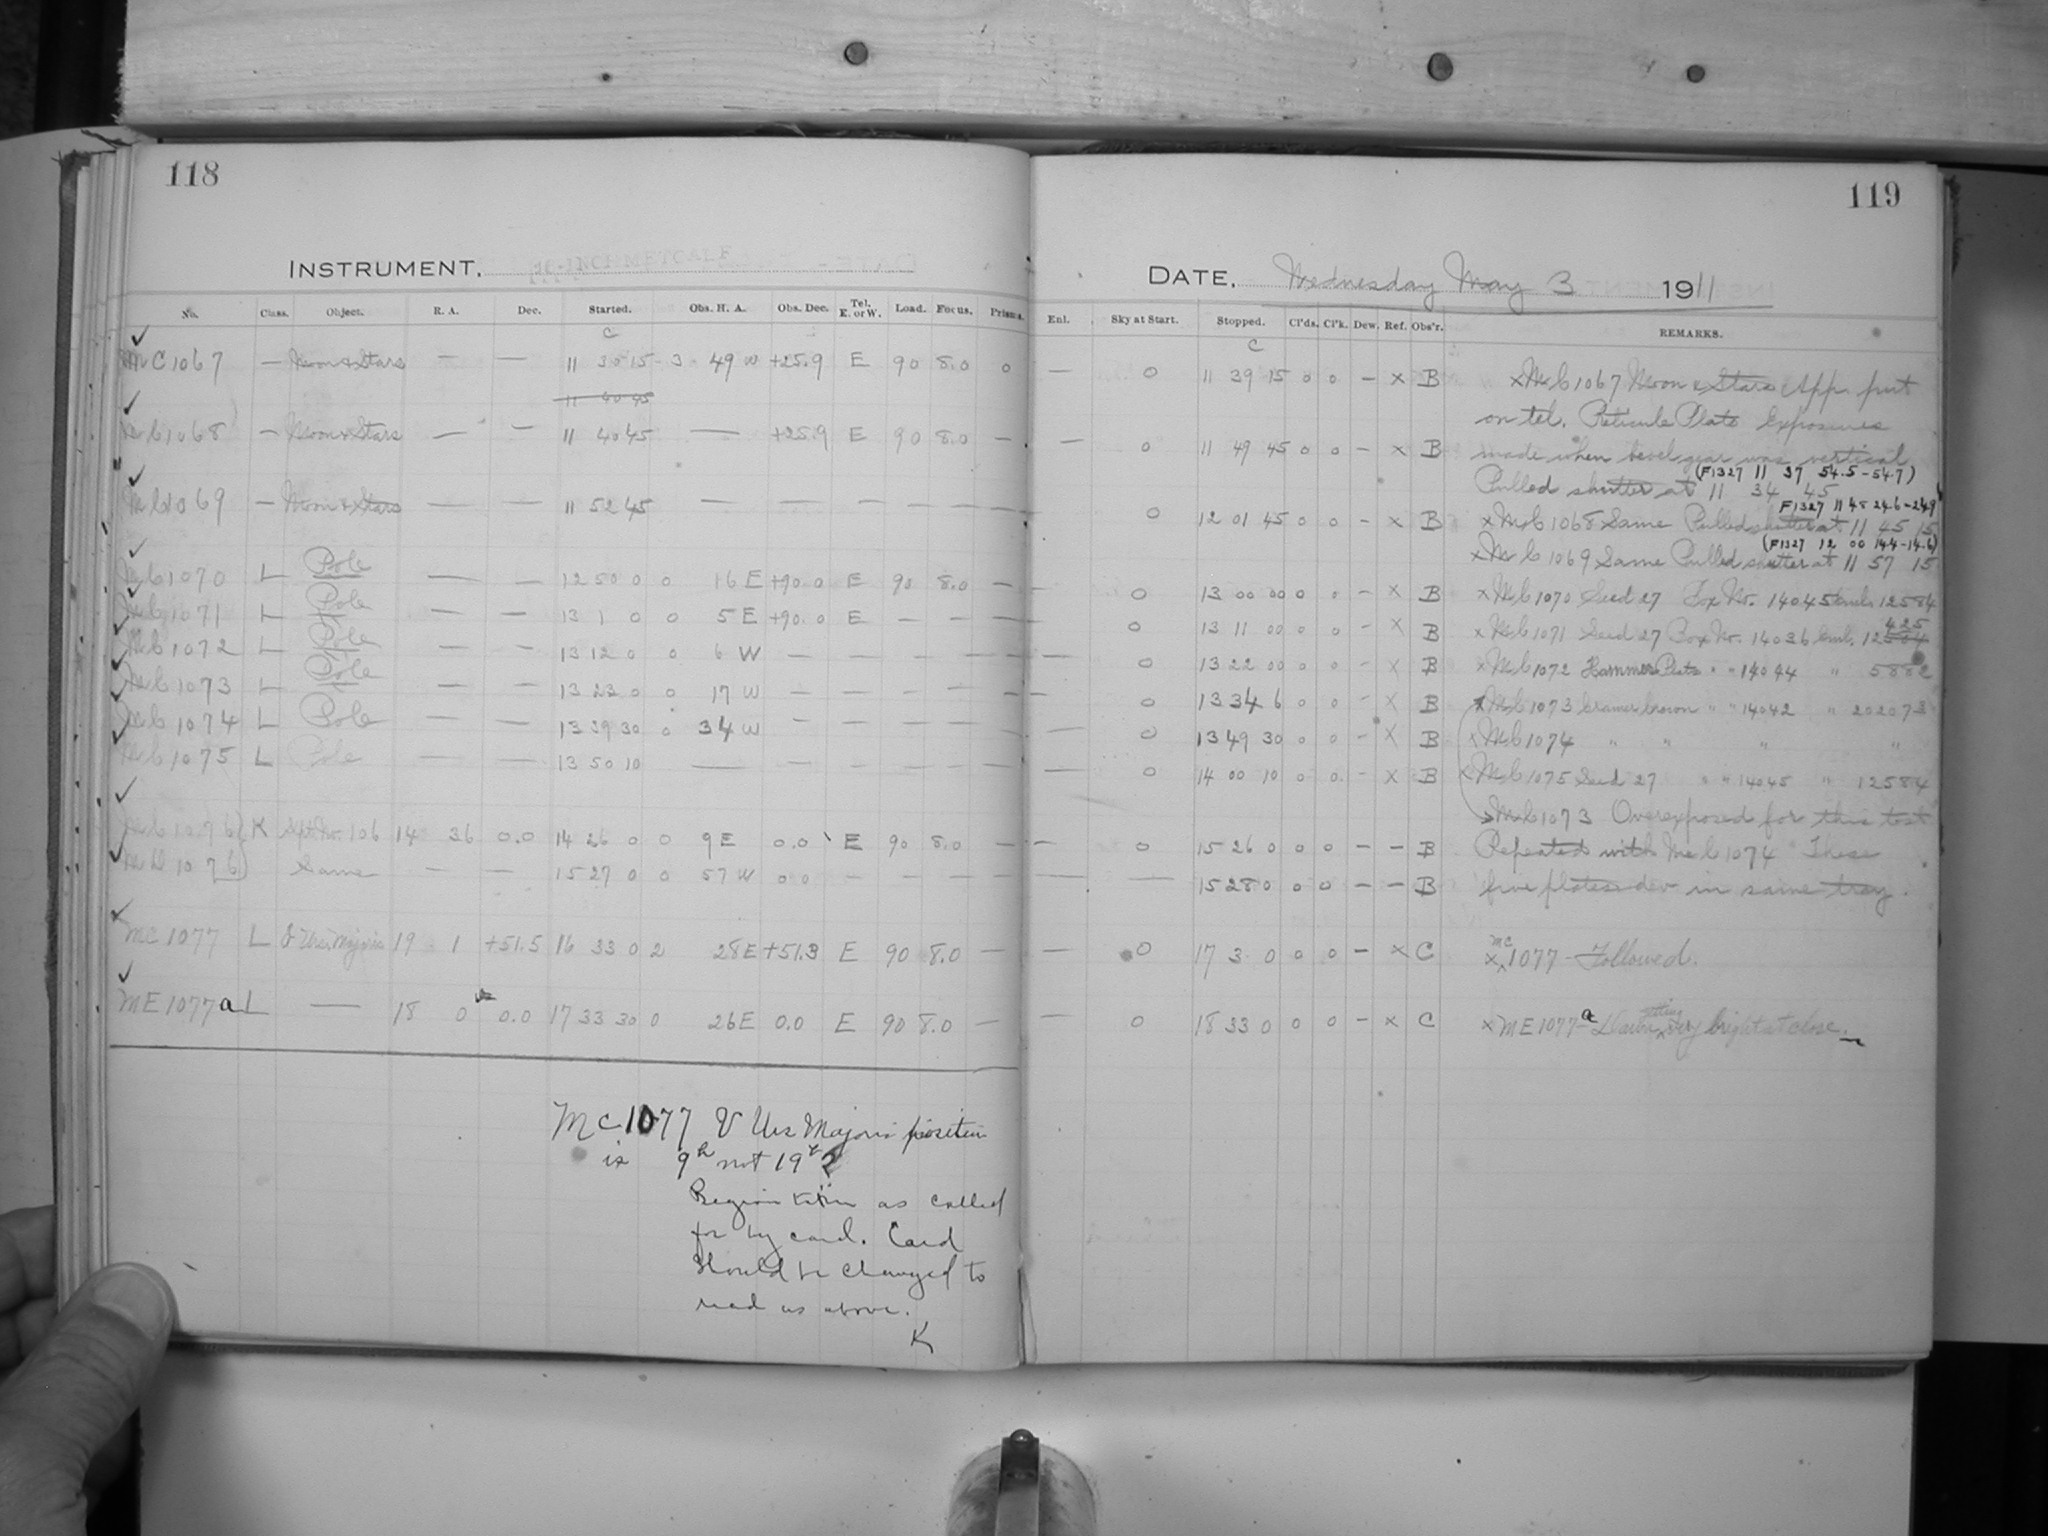 118
INSTRUMENT.
No. Class. Object. R. A. Dec. Started. Obs. H. A. Obs. Dec. Tel. E. or W. Load. Focus. Prisms.
C
MC 1067 — Moon & Stars — — 11 30 15 - 3 49 W +25.9 E 90 8.0 0
11 40 45
MC 1068 — Moon & Stars — — 11 40 45 — +25.9 E 90 8.0 —
MC 1069 — Moon & Stars — — 11 52 45 — — — — — —
MC 1070 L Pole — — 12 50 0 0 16 E +90.0 E 90 8.0 —
MC 1071 L Pole — — 13 1 0 0 5 E +90.0 E — — —
MC 1072 L Pole — — 13 12 0 0 6 W — — — — —
MC 1073 L Pole — — 13 23 0 0 17 W — — — — —
MC 1074 L Pole — — 13 39 30 0 34 W — — — — —
MC 1075 L Pole — — 13 50 10 — — — — — —
MC 1076 K Spt. No. 106 14 36 0.0 14 26 0 0 9 E 0.0 E 90 8.0 —
1076 Same — — 15 27 0 0 57 W 0 0 — — — —
MC 1077 L Urs. Majoris 19 1 +51.5 16 33 0 2 28 E +51.3 E 90 8.0 —
ME 1077a L — 18 0 0.0 17 33 30 0 26 E 0.0 E 90 8.0 —
MC 1077 V Urs Majoris position
is 9h not 19h
Region taken as called
for by card. Card
should be changed to
read as above.
K
119
DATE. Wednesday May 3 1911
Enl. Sky at Start. Stopped. Cl'ds. Cl'k. Dew. Ref. Obs'r. REMARKS.
C
— 0 11 39 15 0 0 — x B
— 0 11 49 45 0 0 — x B
0 12 01 45 0 0 — x B
— 0 13 00 00 0 0 — x B
0 13 11 00 0 0 — x B
— 0 13 22 00 0 0 — x B
— 0 13 34 6 0 0 — x B
— 0 13 49 30 0 0 — x B
— 0 14 00 10 0 0 — x B
— 0 15 26 0 0 0 — — B
— — 15 28 0 0 0 — — B
— 0 17 3 0 0 0 — x C
— 0 18 33 0 0 0 — x C
x MC 1067 Moon & Stars App. put
on tel. Reticule Plate Exposures
made when bevel gear was vertical
(F1327 11 37 54.5-54.7)
Pulled shutter at 11 34 45
F1327 11 48 24.6-24.9
x MC 1068 Same Pulled shutter at 11 45 15
(F1327 12 00 14.4-14.6)
x MC 1069 Same Pulled shutter at 11 57 15
x MC 1070 Seed 27 Box No. 14045 Emul. 12584
425
x MC 1071 Seed 27 Box No. 14036 Emul. 12584
x MC 1072 Hammer Plate " " 14044 " 5882
x MC 1073 Cramer Crown " " 14042 " 202073
x MC 1074 " " " "
x MC 1075 Seed 27 " " 14045 " 12584
MC 1073 Overexposed for this test
Repeated with MC 1074 These
five plates dev in same tray.
x MC 1077 - Followed.
x ME 1077-a Dawn getting very bright at close.